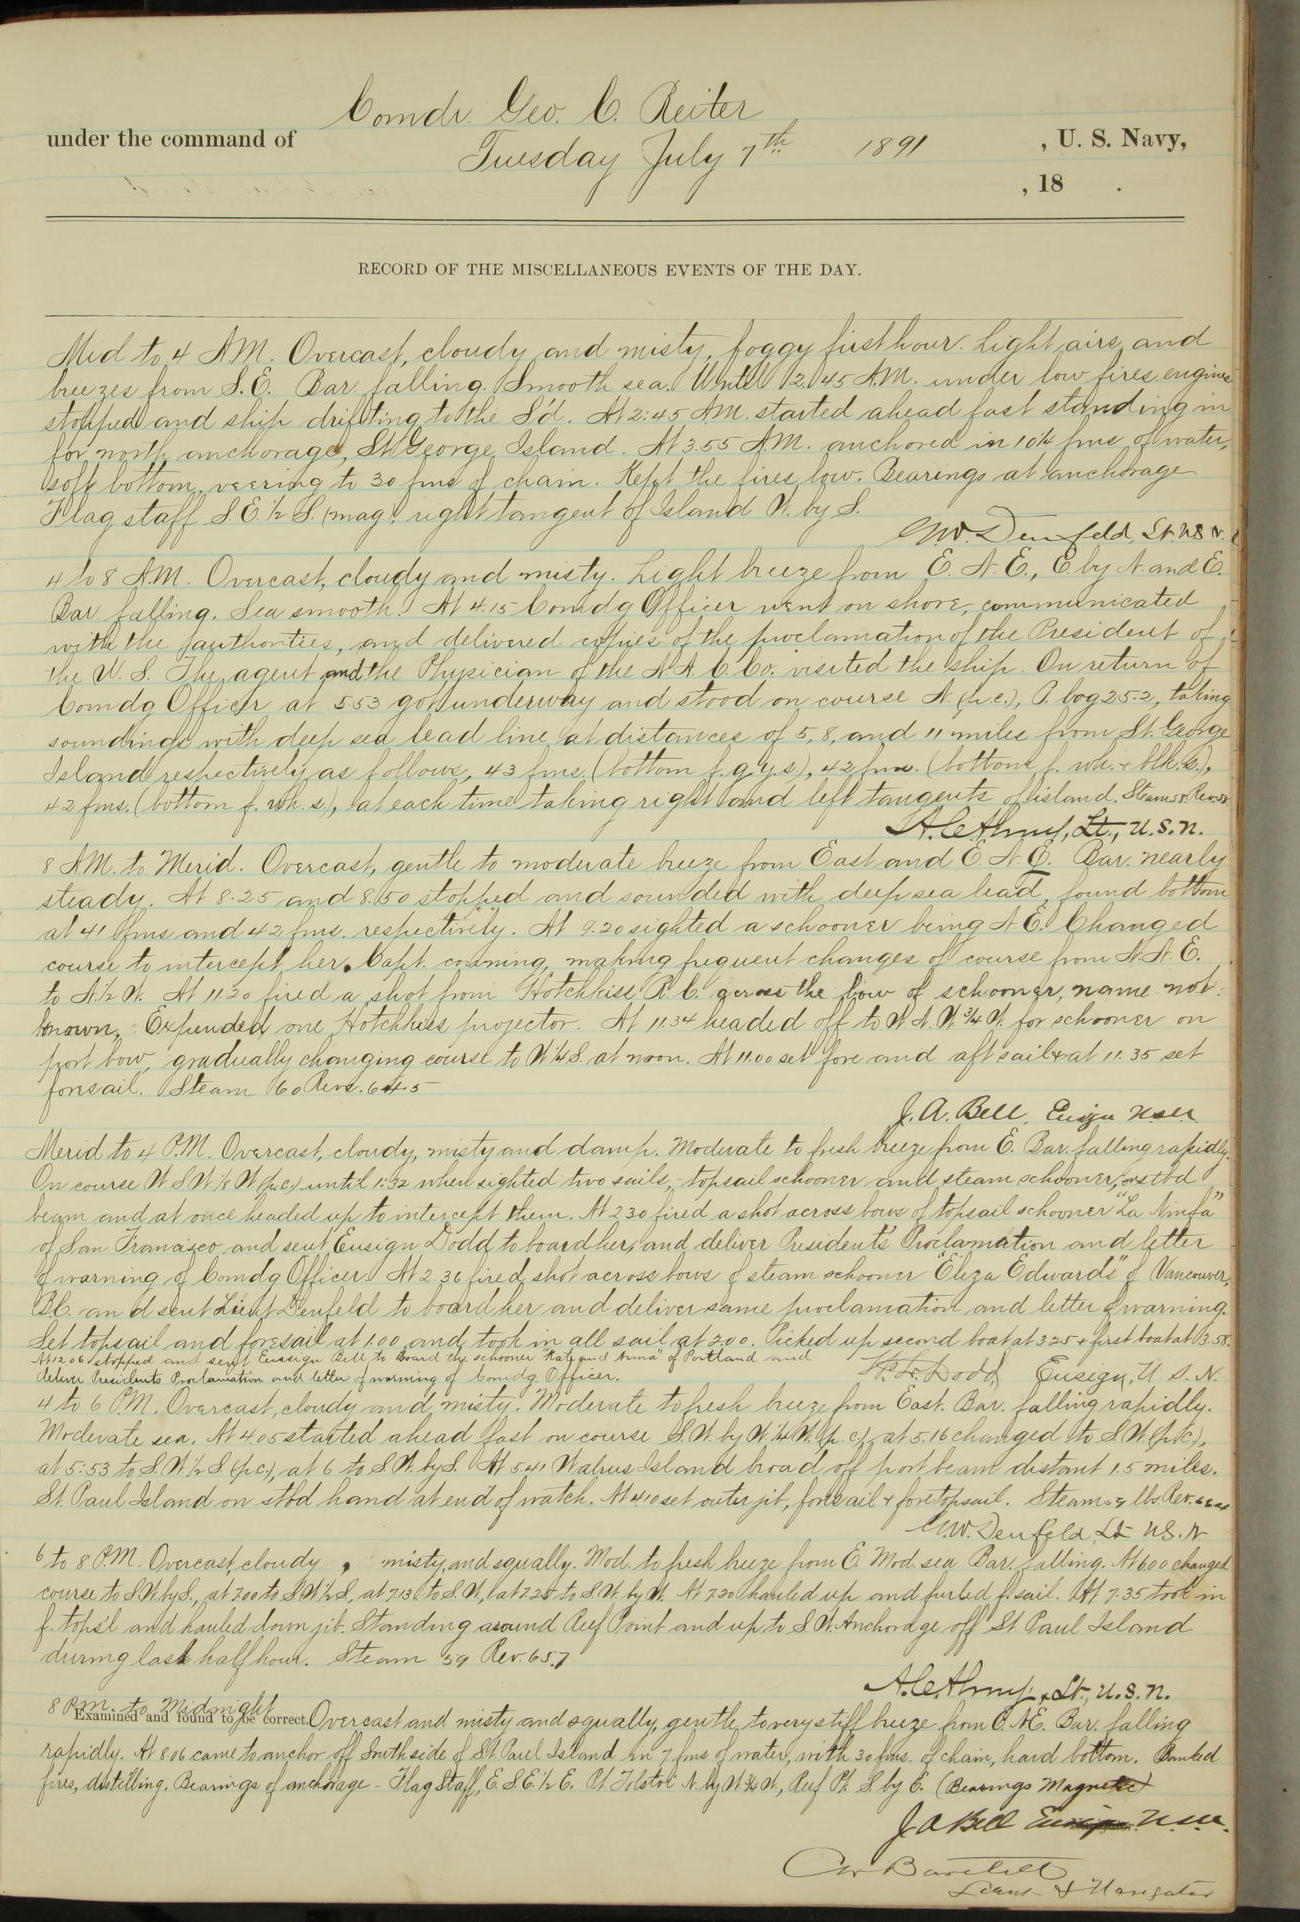 Comdr. Geo. C. Reiter
under the command of
Tuesday July 7th 1891
, U. S. Navy,
, 18 .
RECORD OF THE MISCELLANEOUS EVENTS OF THE DAY.
Mid to 4 A.M. Overcast, cloudy and misty, foggy first hour. Light airs and
breezes from S.E. Bar. falling. Smooth sea. Until 2.45 A.M. under low fires engines
stopped and ship drifting to the S'd. At 2:45 A.M. started ahead fast standing in
for north anchorage, St George Island. At 3.55 A.M. anchored in 10 1/4 fms of water,
soft bottom, veering to 30 fms of chain. Kept the fires low. Bearings at anchorage
Flag staff S.E. 1/2 S. (mag), right tangent of Island W. by S.
G.W. Denfeld, Lt. U.S.N.
4 to 8 A.M. Overcast, cloudy and misty. Light breeze from E.N.E., E. by N. and E.
Bar. falling. Sea smooth. At 4.15 Comdg Officer went on shore, communicated
with the authorities, and delivered copies of the proclamation of the President of
the U.S. The agent and the Physician of the N.A.C.Co. visited the ship. On return of
Comdg Officer at 5.53 got underway and stood on course N. (p.c.), P. log 25.2, taking
soundings with deep sea lead line, at distances of 5, 8, and 11 miles from St. George
Island respectively as follows, 43 fms. (bottom f.g.y.s.), 42 fms. (bottom f. wh. + blk. s.),
42 fms. (bottom f. wh. s.), at each time taking right and left tangents of island. Steam 58. Rev. 58
Lt., U.S.N.
8 A.M. to Merid. Overcast, gentle to moderate breeze from East and E.N.E. Bar. nearly
steady. At 8.25 and 8.50 stopped and sounded with deep sea lead, found bottom
at 41 fms and 42 fms. respectively. At 9.20 sighted a schooner being N.E. Changed
course to intercept her. Capt. conning, making frequent changes of course from N.N.E.
to N. 1/2 W. At 11.20 fired a shot from Hotchkiss R.C. across the bow of schooner, name not
known. Expended one Hotchkiss projector. At 11.34 headed off to W.N.W. 3/4 W. for schooner on
port bow, gradually changing course to W. 1/4 S. at noon. At 11.00 set fore and aft sail & at 11.35 set
foresail. Steam 60 Revs. 64.5
J. A. Bell, Ensign USN
Merid to 4 P.M. Overcast, cloudy, misty and damp. Moderate to fresh breeze from E. Bar. falling rapidly.
On course W S W 1/8 W (p.c.) until 1:32 when sighted two sails, topsail schooner and steam schooner, on stbd
beam and at once headed up to intercept them. At 2.30 fired a shot across bows of topsail schooner "La Ninfa"
of San Francisco and sent Ensign Dodd to board her, and deliver Presidents' Proclamation and letter
of warning of Comdg Officer. At 2.36 fired shot across bows of steam schooner "Eliza Edwards" of Vancouver,
B.C. and sent Lieut Denfeld to board her and deliver same proclamation and letter of warning.
Set topsail and foresail at 1.00 and took in all sail at 2.00. Picked up second boat at 3.25 + first boat at 3.58.
At 12.06 stopped and sent Ensign Bell to Board the schooner "Kate and Anna" of Portland and
deliver Presidents Proclamation and letter of warning of Comdg. Officer.
Dodd, Ensign, U.S.N.
4 to 6 P.M. Overcast, cloudy and misty. Moderate to fresh breeze from East. Bar. falling rapidly.
Moderate sea. At 4.05 started ahead fast on course S.W. by W. 1/4 W. (p.c.), at 5.16 changed to S.W. (p.c.),
at 5:53 to S.W. 1/2 S. (p.c.), at 6 to S.W. by S. At 5.41 Walrus Island broad off port beam distant 1.5 miles.
St. Paul Island on stbd hand at end of watch. At 4.10 set outer jib, foresail + foretopsail. Steam lbs Rev.
G.W. Denfeld, Lt. U.S.N.
6 to 8 P.M. Overcast, cloudy, misty, and squally. Mod. to fresh breeze from E. Mod. sea. Bar. falling. At 6.00 changed
course to S.W. by S., at 7.00 to S.W. 1/2 S., at 7.13 to S.W., at 7.25 to S.W. by W. At 7.30 hauled up and furled f. sail. At 7.35 took in
f. tops'l and hauled down jib. Standing around Reef Point and up to S.W. Anchorage off St Paul Island
during last half hour. Steam 59 Rev. 65.7
Lt., U.S.N.
8 P.M. to Midnight
Examined and found to be correct. Overcast and misty and squally, gentle to very stiff breeze from E.N.E. Bar. falling
rapidly. At 8.06 came to anchor off South side of St. Paul Island in 7 fms of water, with 30 fms. of chain, hard bottom. Banked
fires, distilling. Bearings of anchorage - Flag Staff, E.S.E. 1/2 E. Pt Tolstoi N. by W. 3/4 W., Reef Pt. S. by E. (Bearings Magnetic)
J A Bell Ensign USN.
C W Bartlett
Lieut & Navigator